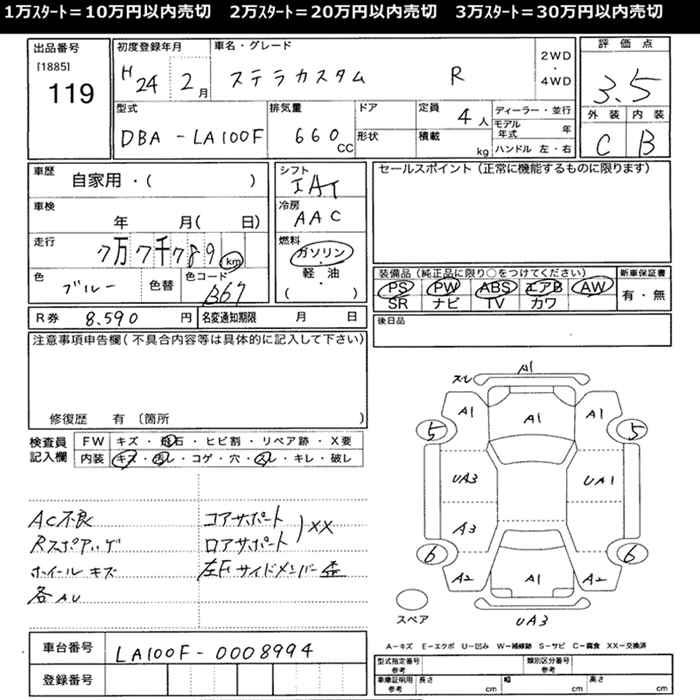 1万ｽﾀｰﾄ＝10万円以内売切　2万ｽﾀｰﾄ＝20万円以内売切　3万ｽﾀｰﾄ＝30万円以内売切
出品番号
[1885]
119
初度登録年月
H 24 2 月
車名・グレード
ステラカスタム R
2WD
・
4WD
評価点
3.5
外装 内装
C B
型式
DBA - LA100F
排気量
660 CC
ドア
形状
定員
4人
積載
kg
ディーラー・並行
モデル年式 年
ハンドル 左・右
車歴
自家用・( )
車検
年 月( 日)
走行
7万7千789 km
色
ブルー
色替
色コード
B67
シフト
IAT
冷房
AAC
燃料
ガソリン
・
軽・油
・
( )
セールスポイント（正常に機能するものに限ります）
装備品（純正品に限り○をつけてください）
PS PW ABS エアB AW
SR ナビ TV カワ
新車保証書
有・無
後日品
R券 8.590 円
名変通知期限 月 日
注意事項申告欄（不具合内容等は具体的に記入して下さい）
修復歴 有〔箇所 〕
検査員
記入欄
FW キズ・飛石・ヒビ割・リペア跡・X要
内装 キズ・汚レ・コゲ・穴・スレ・キレ・破レ
AC不良
Rスポアゲ
ホイールキズ
各AU
コアサポート
ロアサポート
)XX
左Fサイドメンバー歪
スレ A1
A1 A1 A1
5 5
UA3 UA1
A3
6 6
A2 A1 A2
スペア
UA3
A－キズ E－エクボ U－凹み W－補修跡 S－サビ C－腐食 XX－交換済
車台番号
LA100F-0008994
登録番号
型式指定番号
参考
類別区分番号
参考
車庫証明用
参考
長さ cm
幅 cm
高さ cm